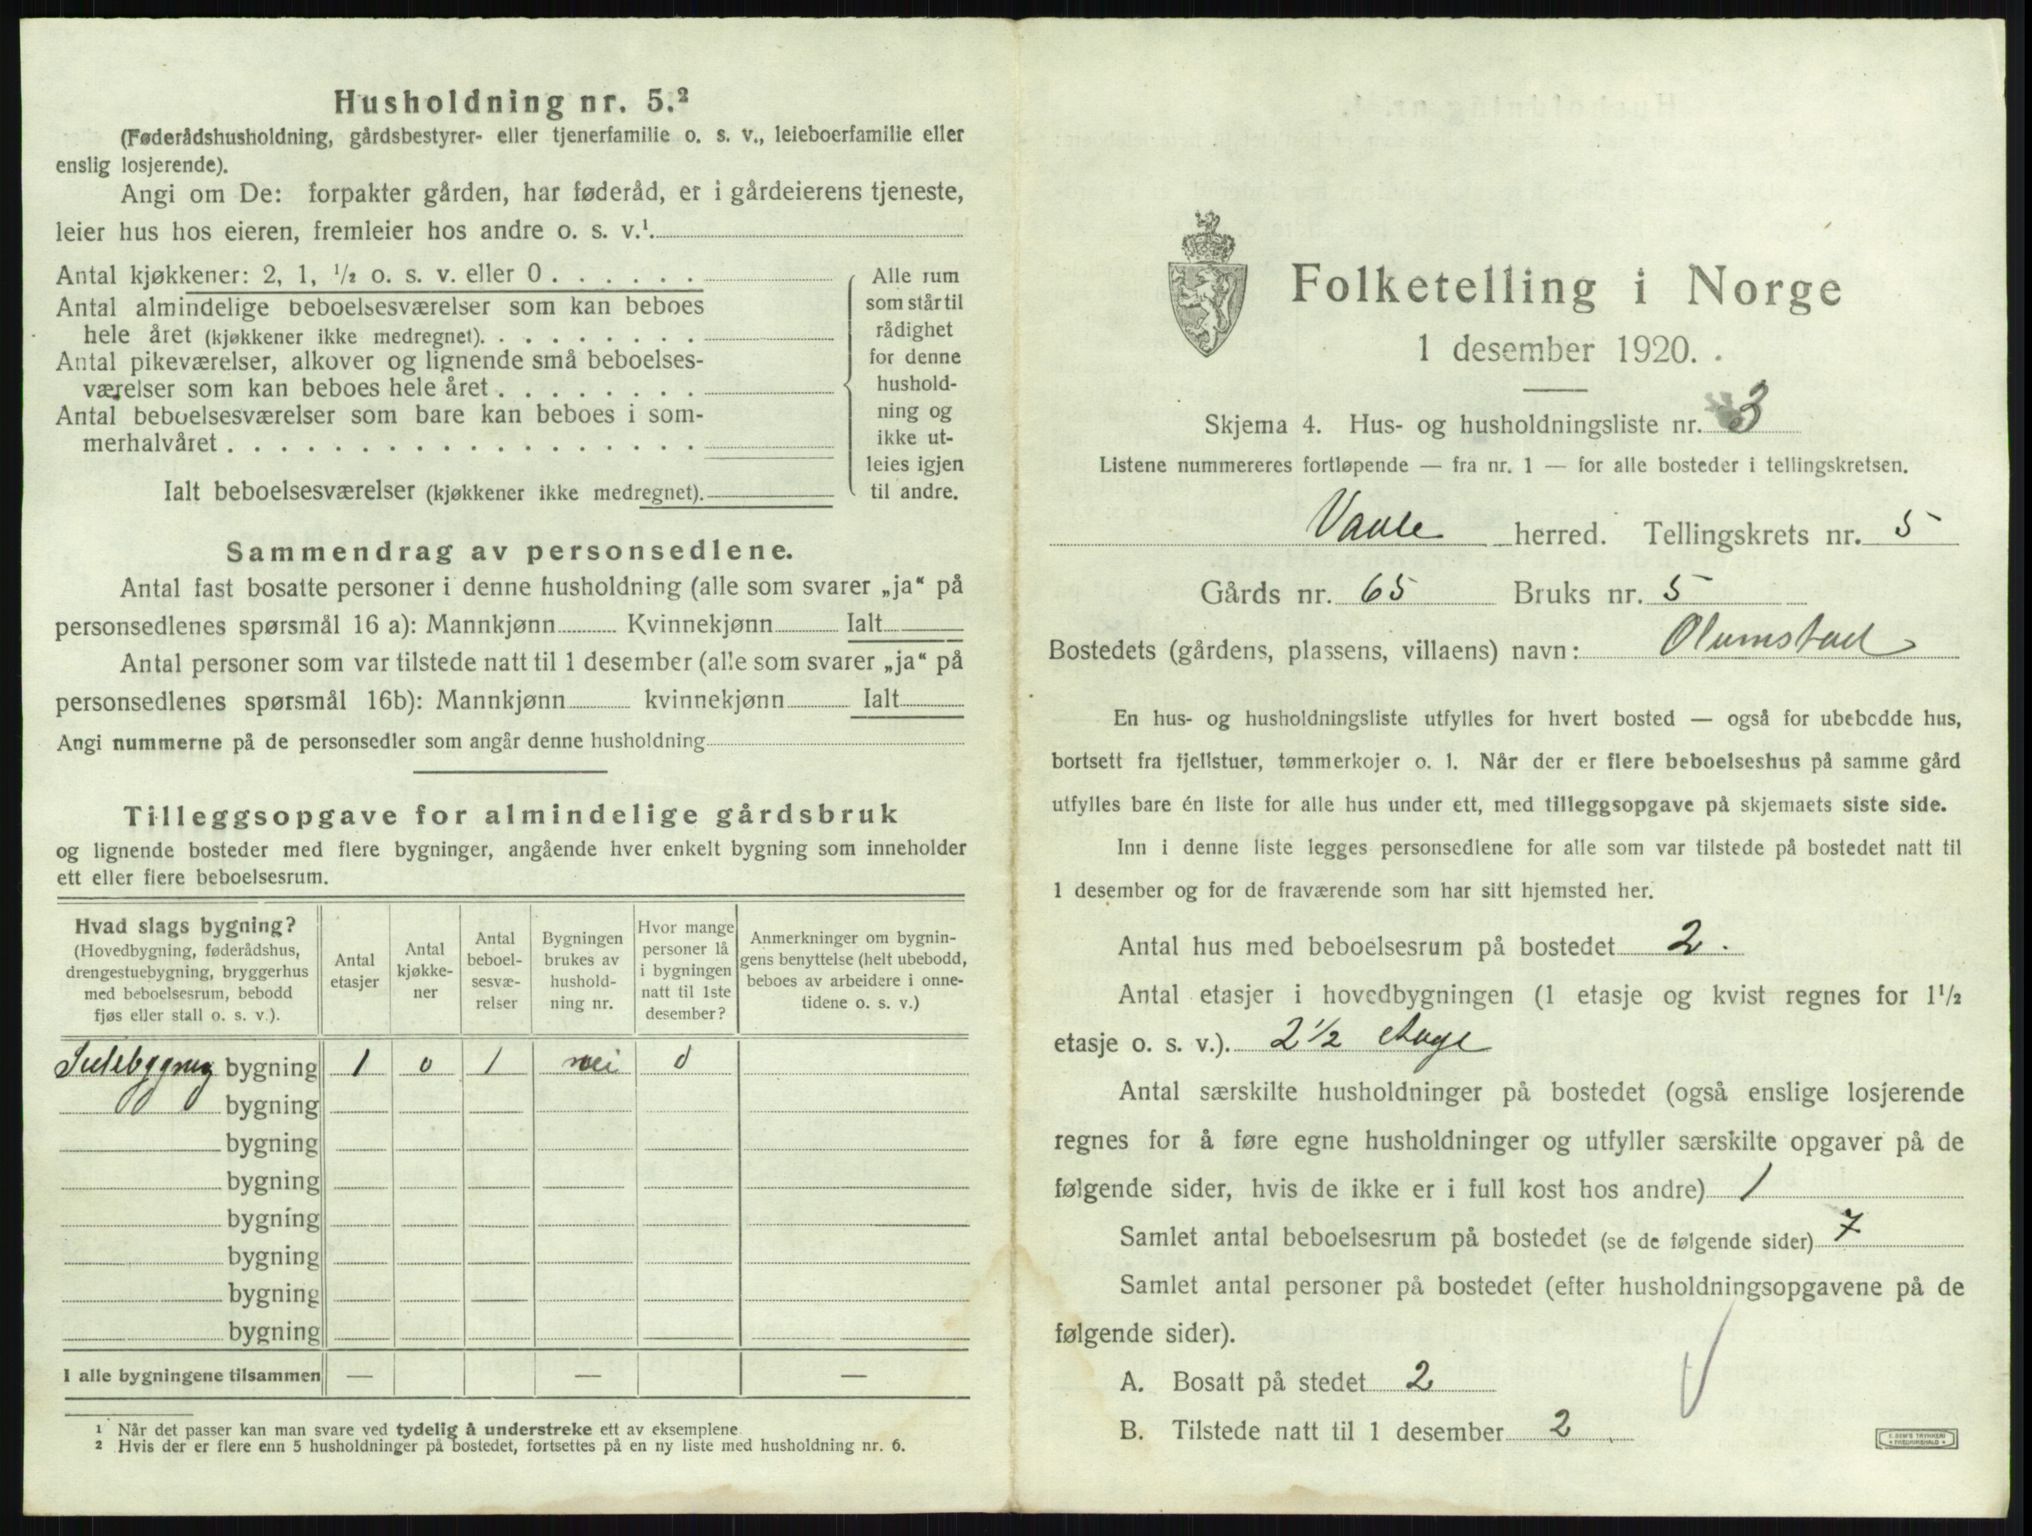 Husholdning nr. 5.²
(Føderådshusholdning, gårdsbestyrer- eller tjenerfamilie o. s. v., leieboerfamilie eller
enslig losjerende).
Angi om De: forpakter gården, har føderåd, er i gårdeierens tjeneste,
leier hus hos eieren, fremleier hos andre o. s. v.¹
Antal kjøkkener: 2, 1, ½ o. s. v. eller 0 . . . . . .
Antal almindelige beboelsesværelser som kan beboes
hele året (kjøkkener ikke medregnet). . . . . . . . .
Antal pikeværelser, alkover og lignende små beboelses-
værelser som kan beboes hele året . . . . . . . .
Antal beboelsesværelser som bare kan beboes i som-
merhalvåret . . . . . . . . . . . . . . . . . .
Ialt beboelsesværelser (kjøkkener ikke medregnet).
Alle rum
som står til
rådighet
for denne
hushold-
ning og
ikke ut-
leies igjen
til andre.
Sammendrag av personsedlene.
Antal fast bosatte personer i denne husholdning (alle som svarer „ja“ på
personsedlenes spørsmål 16 a): Mannkjønn Kvinnekjønn Ialt
Antal personer som var tilstede natt til 1 desember (alle som svarer „ja“ på
personsedlenes spørsmål 16b): Mannkjønn kvinnekjønn Ialt
Angi nummerne på de personsedler som angår denne husholdning
Tilleggsopgave for almindelige gårdsbruk
og lignende bosteder med flere bygninger, angående hver enkelt bygning som inneholder
ett eller flere beboelsesrum.
Hvad slags bygning?
(Hovedbygning, føderådshus,
drengestuebygning, bryggerhus
med beboelsesrum, bebodd
fjøs eller stall o. s. v.).
Antal
etasjer
Antal
kjøkke-
ner
Antal
beboel-
sesvæ-
relser
Bygningen
brukes av
hushold-
ning nr.
Hvor mange
personer lå
i bygningen
natt til 1ste
desember?
Anmerkninger om bygnin-
gens benyttelse (helt ubebodd,
beboes av arbeidere i onne-
tidene o. s. v.)
bygning 1 0 1 nei 0
bygning
bygning
bygning
bygning
bygning
bygning
bygning
I alle bygningene tilsammen — — —
¹ Når det passer kan man svare ved tydelig å understreke ett av eksemplene.
² Hvis der er flere enn 5 husholdninger på bostedet, fortsettes på en ny liste med husholdning nr. 6.
Folketelling i Norge
1 desember 1920.
Skjema 4. Hus- og husholdningsliste nr. 3
Listene nummereres fortløpende — fra nr. 1 — for alle bosteder i tellingskretsen.
Vaale herred. Tellingskrets nr. 5
Gårds nr. 65 Bruks nr. 5
Bostedets (gårdens, plassens, villaens) navn: Olumstad
En hus- og husholdningsliste utfylles for hvert bosted — også for ubebodde hus,
bortsett fra fjellstuer, tømmerkojer o. l. Når der er flere beboelseshus på samme gård
utfylles bare én liste for alle hus under ett, med tilleggsopgave på skjemaets siste side.
Inn i denne liste legges personsedlene for alle som var tilstede på bostedet natt til
1 desember og for de fraværende som har sitt hjemsted her.
Antal hus med beboelsesrum på bostedet 2.
Antal etasjer i hovedbygningen (1 etasje og kvist regnes for 1½
etasje o. s. v.). 2½ etage
Antal særskilte husholdninger på bostedet (også enslige losjerende
regnes for å føre egne husholdninger og utfyller særskilte opgaver på de
følgende sider, hvis de ikke er i full kost hos andre) 1
Samlet antal beboelsesrum på bostedet (se de følgende sider) 7
Samlet antal personer på bostedet (efter husholdningsopgavene på de
følgende sider).
A. Bosatt på stedet 2
B. Tilstede natt til 1 desember 2